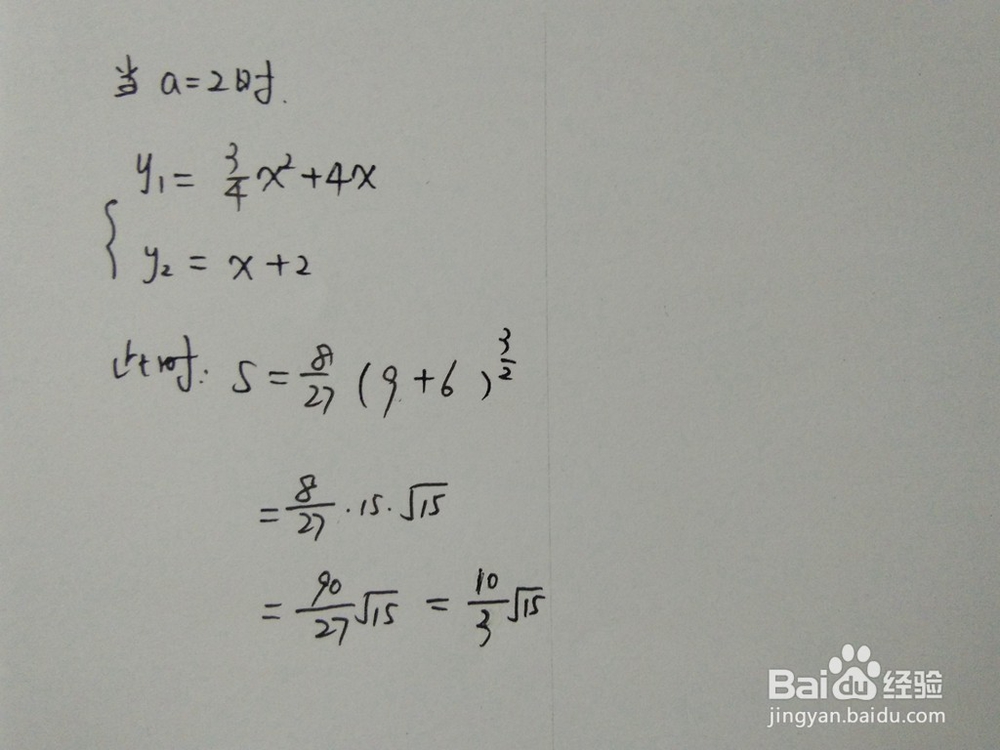 当 a=2时.
y₁= 3/4 x²+4x
y₂ = x+2
此时: S = 8/27 (9+6)^(3/2)
= 8/27 · 15 · √15
= 90/27 √15 = 10/3 √15
Baidu 经验
jingyan.baidu.com